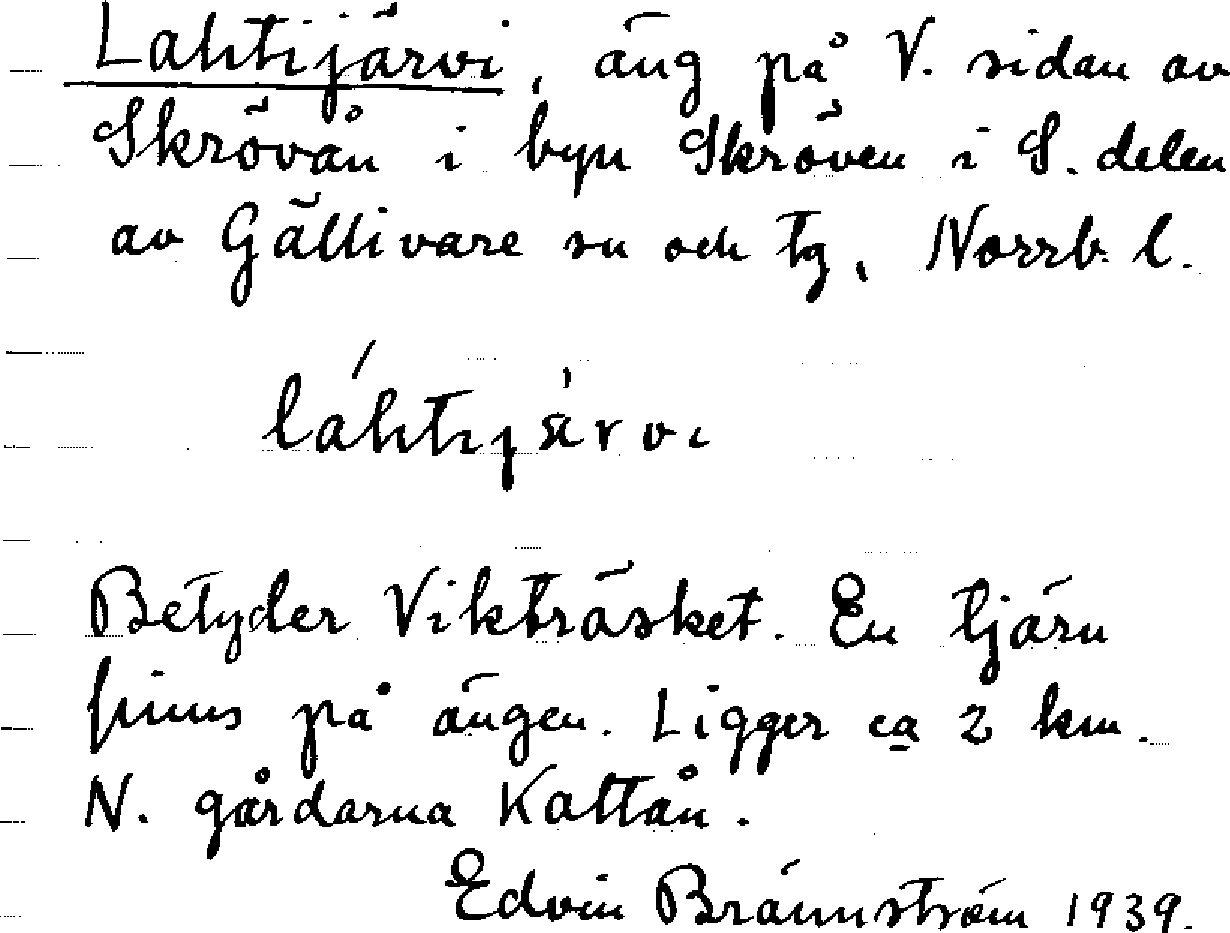 Lahtijärvi, äng på V. sidan av
Skrövån i byn Skröven i S. delen
av Gällivare sn och tg, Norrb. l.
láhtijä̀rvi
Betyder Vikträsket. En tjärn
finns på ängen. Ligger ca 2 km.
N. gårdarna Kattån.
Edvin Brännström 1939.